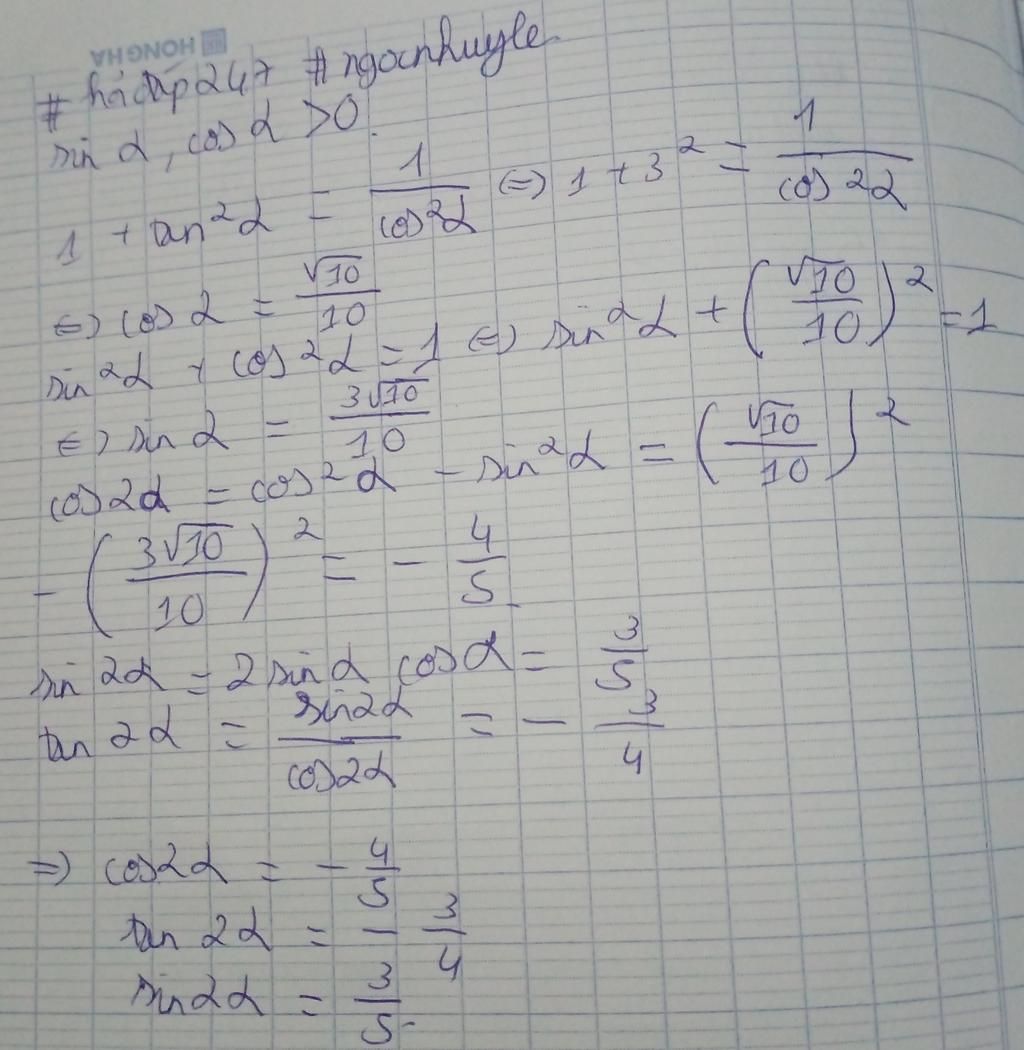 HONG HA
# hỏi đáp 247 # ngocnhuyle
sin α, cos α > 0.
1 + tan²α = 1/cos²α ⇔ 1 + 3² = 1/cos²α
⇔ cos α = √10/10
sin²α + cos²α = 1 ⇔ sin²α + (√10/10)² = 1
⇔ sin α = 3√10/10
cos2α = cos²α - sin²α = (√10/10)²
- (3√10/10)² = - 4/5
sin 2α = 2 sin α cos α = 3/5
tan 2α = sin2α/cos2α = - 3/4
⇒ cos2α = - 4/5
tan 2α = - 3/4
sin2α = 3/5